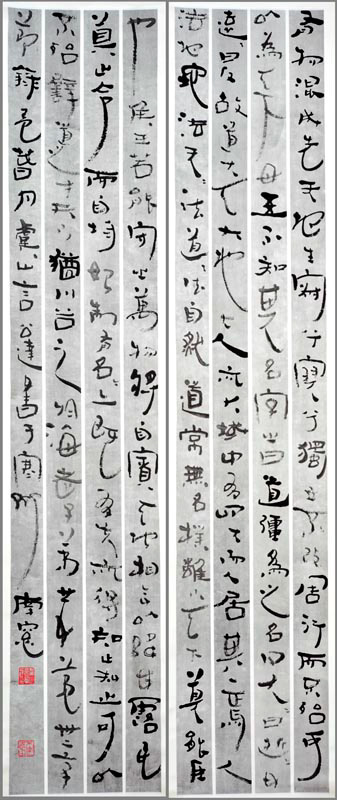 有物混成先天地生寂兮寥兮獨立不改周行而不殆可
以為天下母吾不知其名字之曰道彊為之名曰大大曰逝逝曰
遠遠曰反故道大天大地大人亦大域中有四大而人居其一焉人
法地地法天天法道道法自然道常無名樸雖小天下莫能臣
也侯王若能守之萬物將自賓天地相合以降甘露民
莫之令而自均始制有名名亦既有夫亦將知止知止可以
不殆譬道之在天下猶川谷之於江海老子第廿五章卅二章
節錄